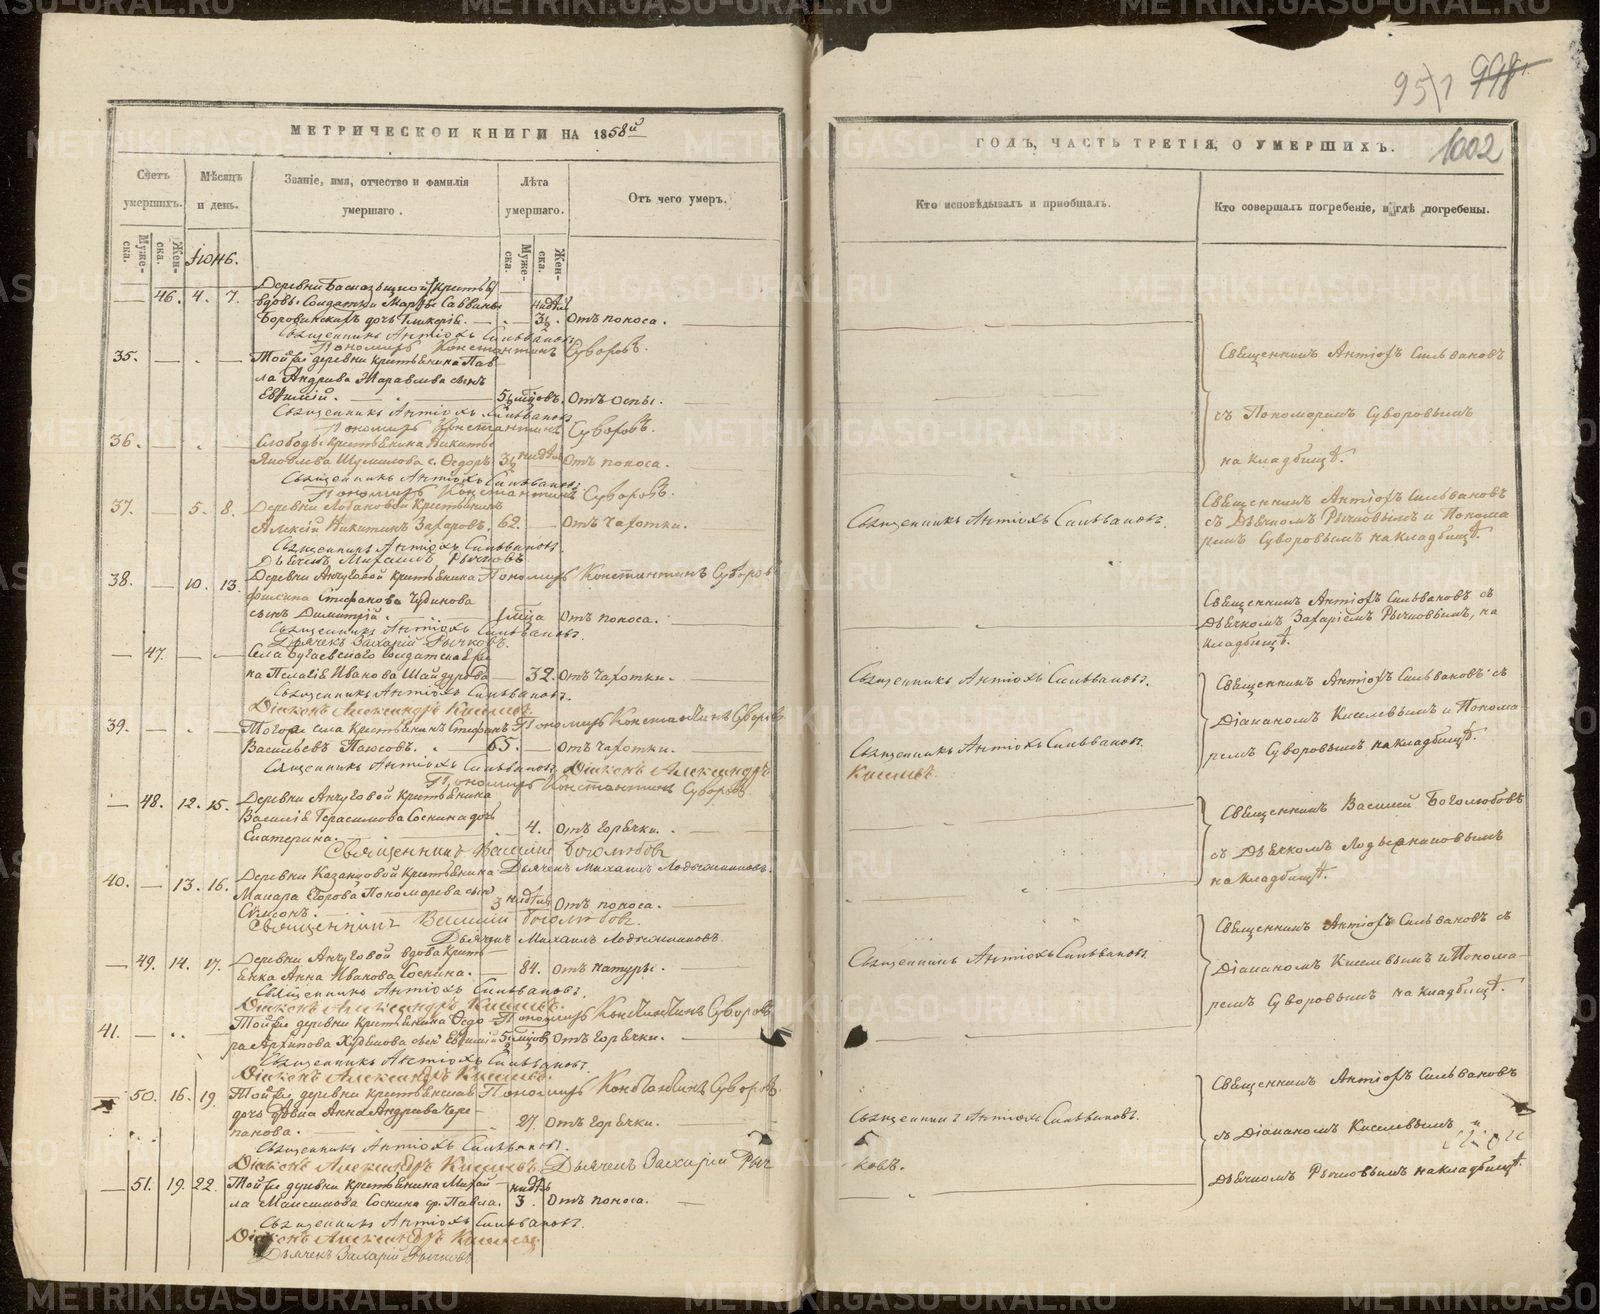 METRIKI.GASO-URAL.RU
95\1 998
МЕТРИЧЕСКОЙ КНИГИ НА 1858й
ГОДЪ, ЧАСТЬ ТРЕТІЯ, О УМЕРШИХЪ. 1002
Счетъ умершихъ.
Муже-ска.
Жен-ска.
Мѣсяцъ и день.
Званіе, имя, отчество и фамилія умершаго.
Лѣта умершаго.
Муже-ска.
Жен-ска.
Отъ чего умеръ.
Кто исповѣдывалъ и пріобщалъ.
Кто совершалъ погребеніе, и гдѣ погребены.
46. 4. 7. Деревни
вдовы Солдатки Марѳы Саввины
дочь Гликерія. Отъ поноса.
Священникъ Антіохъ Сильвановъ
Пономарь Константинъ Суворовъ.
35. Той же деревни крестьянина Пав-
ла Андреева Журавлева сынъ
Евѳимій. 5½ мѣсцовъ. Отъ оспы.
Священникъ Антіохъ Сильвановъ
Пономарь Константинъ Суворовъ.
36. Слободы крестьянина Никиты
Яковлева Шумилова с. Ѳедоръ 3½ недѣл. Отъ поноса.
Священникъ Антіохъ Сильвановъ
Пономарь Константинъ Суворовъ.
Священникъ Антіохъ Сильвановъ
съ Пономаремъ Суворовымъ
на кладбищѣ.
37. 5. 8. Деревни Лобановой Крестьянинъ
Алексій Никитинъ Захаровъ. 62. Отъ чахотки.
Священникъ Антіохъ Сильвановъ.
Дьячекъ Михаилъ Рычковъ
Пономарь Константинъ Суворовъ
Священникъ Антіохъ Сильвановъ.
Священникъ Антіохъ Сильвановъ
съ Дьячкомъ Рычковымъ и Понома
ремъ Суворовымъ на кладбищѣ.
38. 10. 13. Деревни Анчуговой крестьянина
Филипа Стефанова Чудинова
сынъ Димитрій. 1 мѣсца Отъ поноса.
Священникъ Антіохъ Сильвановъ.
Дьячекъ Захарій Рычковъ.
Священникъ Антіохъ Сильвановъ съ
Дьячкомъ Захаріемъ Рычковымъ, на
кладбищѣ.
47. Села Бугаевскаго солдатская же
на Пелагія Иванова Шайдурова 32. Отъ чахотки.
Священникъ Антіохъ Сильвановъ.
Діаконъ Александръ Киселевъ.
Пономарь Константинъ Суворовъ
Священникъ Антіохъ Сильвановъ.
39. Тогоже села Крестьянинъ Стефанъ
Васильевъ Паюсовъ. 65. Отъ чахотки.
Священникъ Антіохъ Сильвановъ. Діаконъ Александръ
Пономарь Константинъ Суворовъ
Священникъ Антіохъ Сильвановъ.
Киселевъ.
Священникъ Антіохъ Сильвановъ съ
Діакономъ Киселевымъ и Понома-
ремъ Суворовымъ на кладбищѣ.
48. 12. 15. Деревни Анчуговой Крестьянина
Василія Герасимова Соснина дочь
Екатерина. 4. Отъ горячки.
Священникъ Василій Боголюбовъ
Дьячекъ Михаилъ
40. 13. 16. Деревни Казанцовой Крестьянина
Макара Егорова Пономарева сынъ
Симсонъ. 3 недѣль Отъ поноса.
Священникъ Василій Боголюбовъ
Дьячекъ Михаилъ
Священникъ Василій Боголюбовъ
съ Дьячкомъ
на кладбищѣ.
49. 14. 17. Деревни Анчуговой вдова Кресть-
янка Анна Иванова Соснина. 84. Отъ натуры.
Священникъ Антіохъ Сильвановъ.
Діаконъ Александръ Киселевъ.
Пономарь Константинъ Суворовъ
Священникъ Антіохъ Сильвановъ
41. Той же деревни крестьянина Ѳедо-
ра Архипова сынъ Евѳимій 5½ мѣсцовъ Отъ горячки.
Священникъ Антіохъ Сильвановъ.
Діаконъ Александръ Киселевъ.
Пономарь Константинъ Суворовъ
Священникъ Антіохъ Сильвановъ съ
Діакономъ Киселевымъ и Понома-
ремъ Суворовымъ на кладбищѣ.
50. 16. 19. Той же деревни крестьянская
дочь дѣвка Анна Андреева Чере-
панова. 27. Отъ горячки.
Священникъ Антіохъ Сильвановъ.
Діаконъ Александръ Киселевъ. Дьячекъ Захарій Рыч
Священникъ Антіохъ Сильвановъ.
ковъ.
51. 19. 22. Той же деревни крестьянина Михай
ла Максимова Соснина с. Павелъ. недѣль 3. Отъ поноса.
Священникъ Антіохъ Сильвановъ.
Діаконъ Александръ Киселевъ
Дьячекъ Захарій Рычковъ
Священникъ Антіохъ Сильвановъ
съ Діакономъ Киселевымъ и
Дьячкомъ Рычковымъ на кладбищѣ.